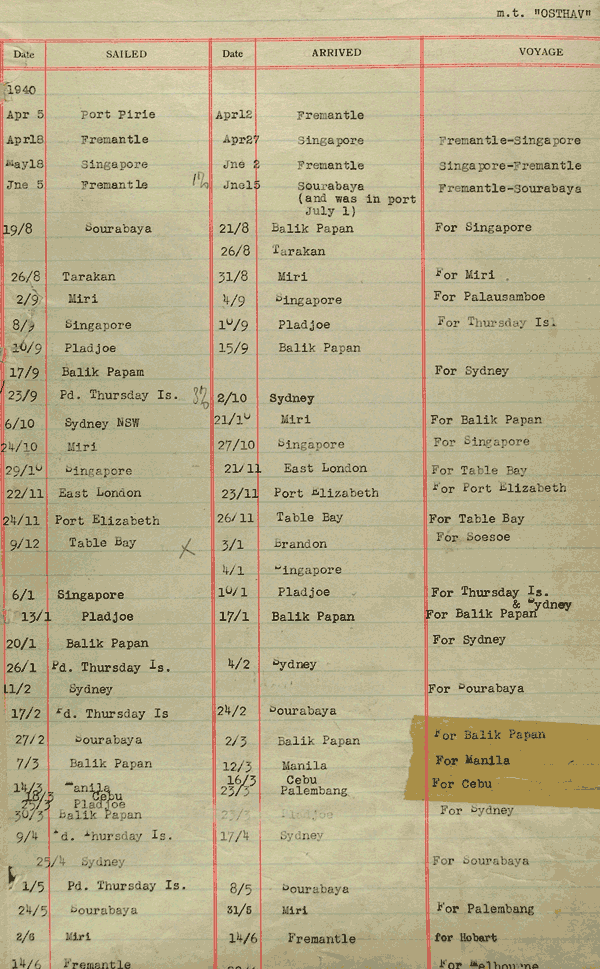 m.t. "OSTHAV"
Date SAILED Date ARRIVED VOYAGE
1940
Apr 5 Port Pirie Apr12 Fremantle
Apr18 Fremantle Apr27 Singapore Fremantle-Singapore
May18 Singapore Jne 2 Fremantle Singapore-Fremantle
Jne 5 Fremantle Jne15 Sourabaya Fremantle-Sourabaya
(and was in port
July 1)
19/8 Sourabaya 21/8 Balik Papan For Singapore
26/8 Tarakan
26/8 Tarakan 31/8 Miri For Miri
2/9 Miri 4/9 Singapore For Palausamboe
8/9 Singapore 10/9 Pladjoe For Thursday Is.
10/9 Pladjoe 15/9 Balik Papan
17/9 Balik Papam For Sydney
23/9 Pd. Thursday Is. 2/10 Sydney
6/10 Sydney NSW 21/10 Miri For Balik Papan
24/10 Miri 27/10 Singapore For Singapore
29/10 Singapore 21/11 East London For Table Bay
22/11 East London 23/11 Port Elizabeth For Port Elizabeth
24/11 Port Elizabeth 26/11 Table Bay For Table Bay
9/12 Table Bay X 3/1 Brandon For Soesoe
4/1 Singapore
6/1 Singapore 10/1 Pladjoe For Thursday Is.
& Sydney
13/1 Pladjoe 17/1 Balik Papan For Balik Papan
20/1 Balik Papan For Sydney
26/1 Pd. Thursday Is. 4/2 Sydney
11/2 Sydney For Sourabaya
17/2 Pd. Thursday Is 24/2 Sourabaya
27/2 Sourabaya 2/3 Balik Papan For Balik Papan
7/3 Balik Papan 12/3 Manila For Manila
14/3 Manila 16/3 Cebu For Cebu
18/3 Cebu 23/3 Palembang
25/3 Pladjoe
30/3 Balik Papan 23/3 Pladjoe For Sydney
9/4 Pd. Thursday Is. 17/4 Sydney
25/4 Sydney For Sourabaya
1/5 Pd. Thursday Is. 8/5 Sourabaya
24/5 Sourabaya 31/5 Miri For Palembang
2/6 Miri 14/6 Fremantle for Hobart
14/6 Fremantle For Melbourne